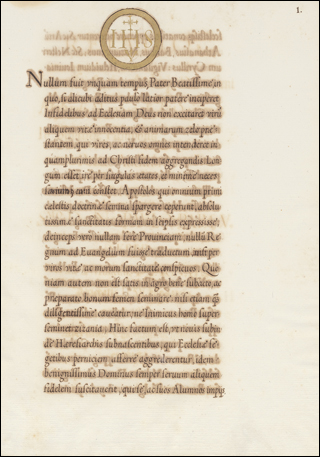 1.
IHS
Nullum fuit vnquam tempus, Pater Beatissime, in
quo, si alicubi aditus paulo latior patere inciperet
Infidelibus ad Ecclesiam, Deus non excitaret viru
aliquem vitæ innocentia, & animarum zelo præ-
stantem, qui vires, ac neruos omnes intenderet in
quamplurimis ad Christi fidem aggregandis. Lon-
gum esset ire per singulas ætates, et minime neces-
sarium; cum constet Apostolos, qui omnium primi
cælestis doctrinæ semina spargere cœperunt, absolu-
tissimæ sanctitatis formam in seipsis expressisse,
deinceps vero nullam fere Prouinciam, nullū Re-
gnum ad Euangelium fuisse traductum, nisi per
viros vitæ ac morum sanctitate conspicuos. Quo-
niam autem non est satis in agro bene subacto, ac
præparato bonum semen seminare, nisi etiam, &
diligentissime caueatur, ne inimicus homo super
seminet zizania; Hinc factum est, vt nouis subin-
de Hæresiarchis subnascentibus, qui Ecclesiæ se-
getibus perniciem afferre aggrederentur, idem
benignissimus Dominus semper seruum aliquem
fidelem suscitauerit, qui se, ac suos Alumnos impijs